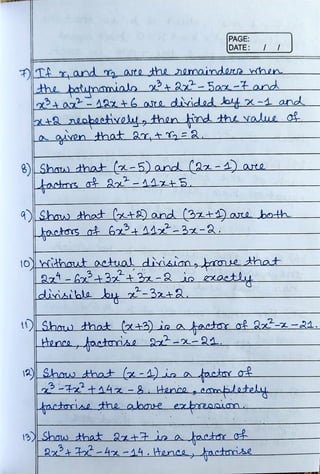 PAGE:
DATE: / /
7) If r₁ and r₂ are the remainders when
the polynomials x³ + 2x² - 5ax - 7 and
x³ + ax² - 12x + 6 are divided by x - 1 and
x + 2 respectively, then find the value of
a given that 2r₁ + r₂ = 2.
8) Show that (x-5) and (2x-1) are
factors of 2x² - 11x + 5.
9) Show that (x+2) and (3x+1) are both
factors of 6x³ + 11x² - 3x - 2.
10) Without actual division, prove that
2x⁴ - 6x³ + 3x² + 3x - 2 is exactly
divisible by x² - 3x + 2.
11) Show that (x+3) is a factor of 2x² - x - 21.
Hence, factorise 2x² - x - 21.
12) Show that (x-1) is a factor of
x³ - 7x² + 14x - 8. Hence, completely
factorise the above expression.
13) Show that 2x+7 is a factor of
2x³ + 7x² - 4x - 14. Hence, factorise